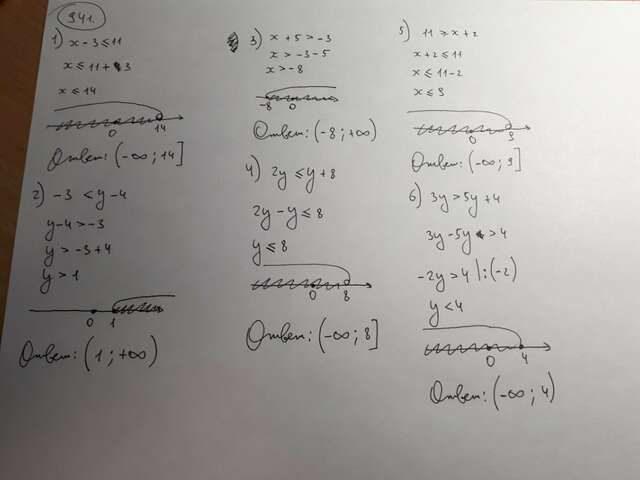 941.
1) x - 3 ≤ 11
x ≤ 11 + 3
x ≤ 14
0 14
Ответ: (-∞; 14]
2) -3 < y - 4
y - 4 > -3
y > -3 + 4
y > 1
0 1
Ответ: (1; +∞)
3) x + 5 > -3
x > -3 - 5
x > -8
-8 0
Ответ: (-8; +∞)
4) 2y ≤ y + 8
2y - y ≤ 8
y ≤ 8
0 8
Ответ: (-∞; 8]
5) 11 ≥ x + 2
x + 2 ≤ 11
x ≤ 11 - 2
x ≤ 9
0 9
Ответ: (-∞; 9]
6) 3y > 5y + 4
3y - 5y > 4
-2y > 4 |: (-2)
y < 4
0 4
Ответ: (-∞; 4)